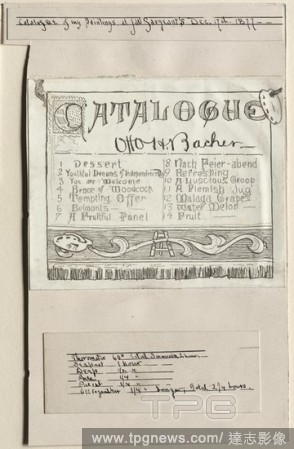 Catalogue of my Paintings at J.W. Sargeant's Dec. 17th 1877
CATALOGUE
Otto H Bacher
1 Dessert
2 Youthful Dreams of Independence
3 You are Welcome
4 Brace of Woodcock
5 Tempting Offer
6 Belmonts
7 A Fruitful Panel
8 Nach Feier-abend
9 Refreshing
10 A Luscious Group
11 A Flemish Jug
12 Malaga Grapes
13 Water Melon
14 Fruit
1 hour
1/4
1/4
1/4 total 2 1/4 hours.
TPG
www.tpgnews.com/達志影像